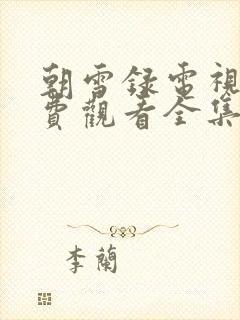 朝雪録電視
費觀看全集
李蘭